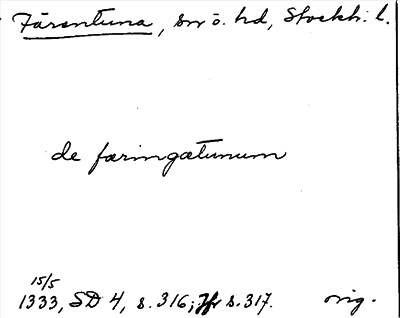 Färentuna, sn o. hd, Stockh: l.
de færingætunum
15/5
1333, SD 4, s. 316; Jfr s. 317. orig.